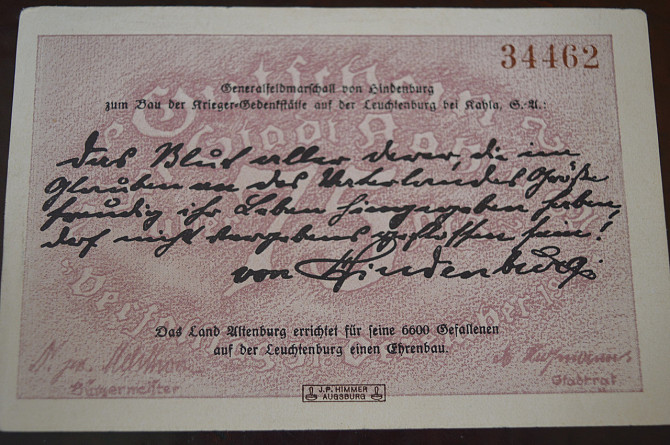 34462
Generalfeldmarschall von Hindenburg
zum Bau der Krieger-Gedenkstätte auf der Leuchtenburg bei Kahla, S.-A.:
Das Blut aller derer, die im
Glauben an des Vaterlandes Größe
freudig ihr Leben hingegeben haben,
darf nicht vergebens geflossen sein!
von Hindenburg
Das Land Altenburg errichtet für seine 6600 Gefallenen
auf der Leuchtenburg einen Ehrenbau.
Bürgermeister
Stadtrat
J.P. HIMMER
AUGSBURG